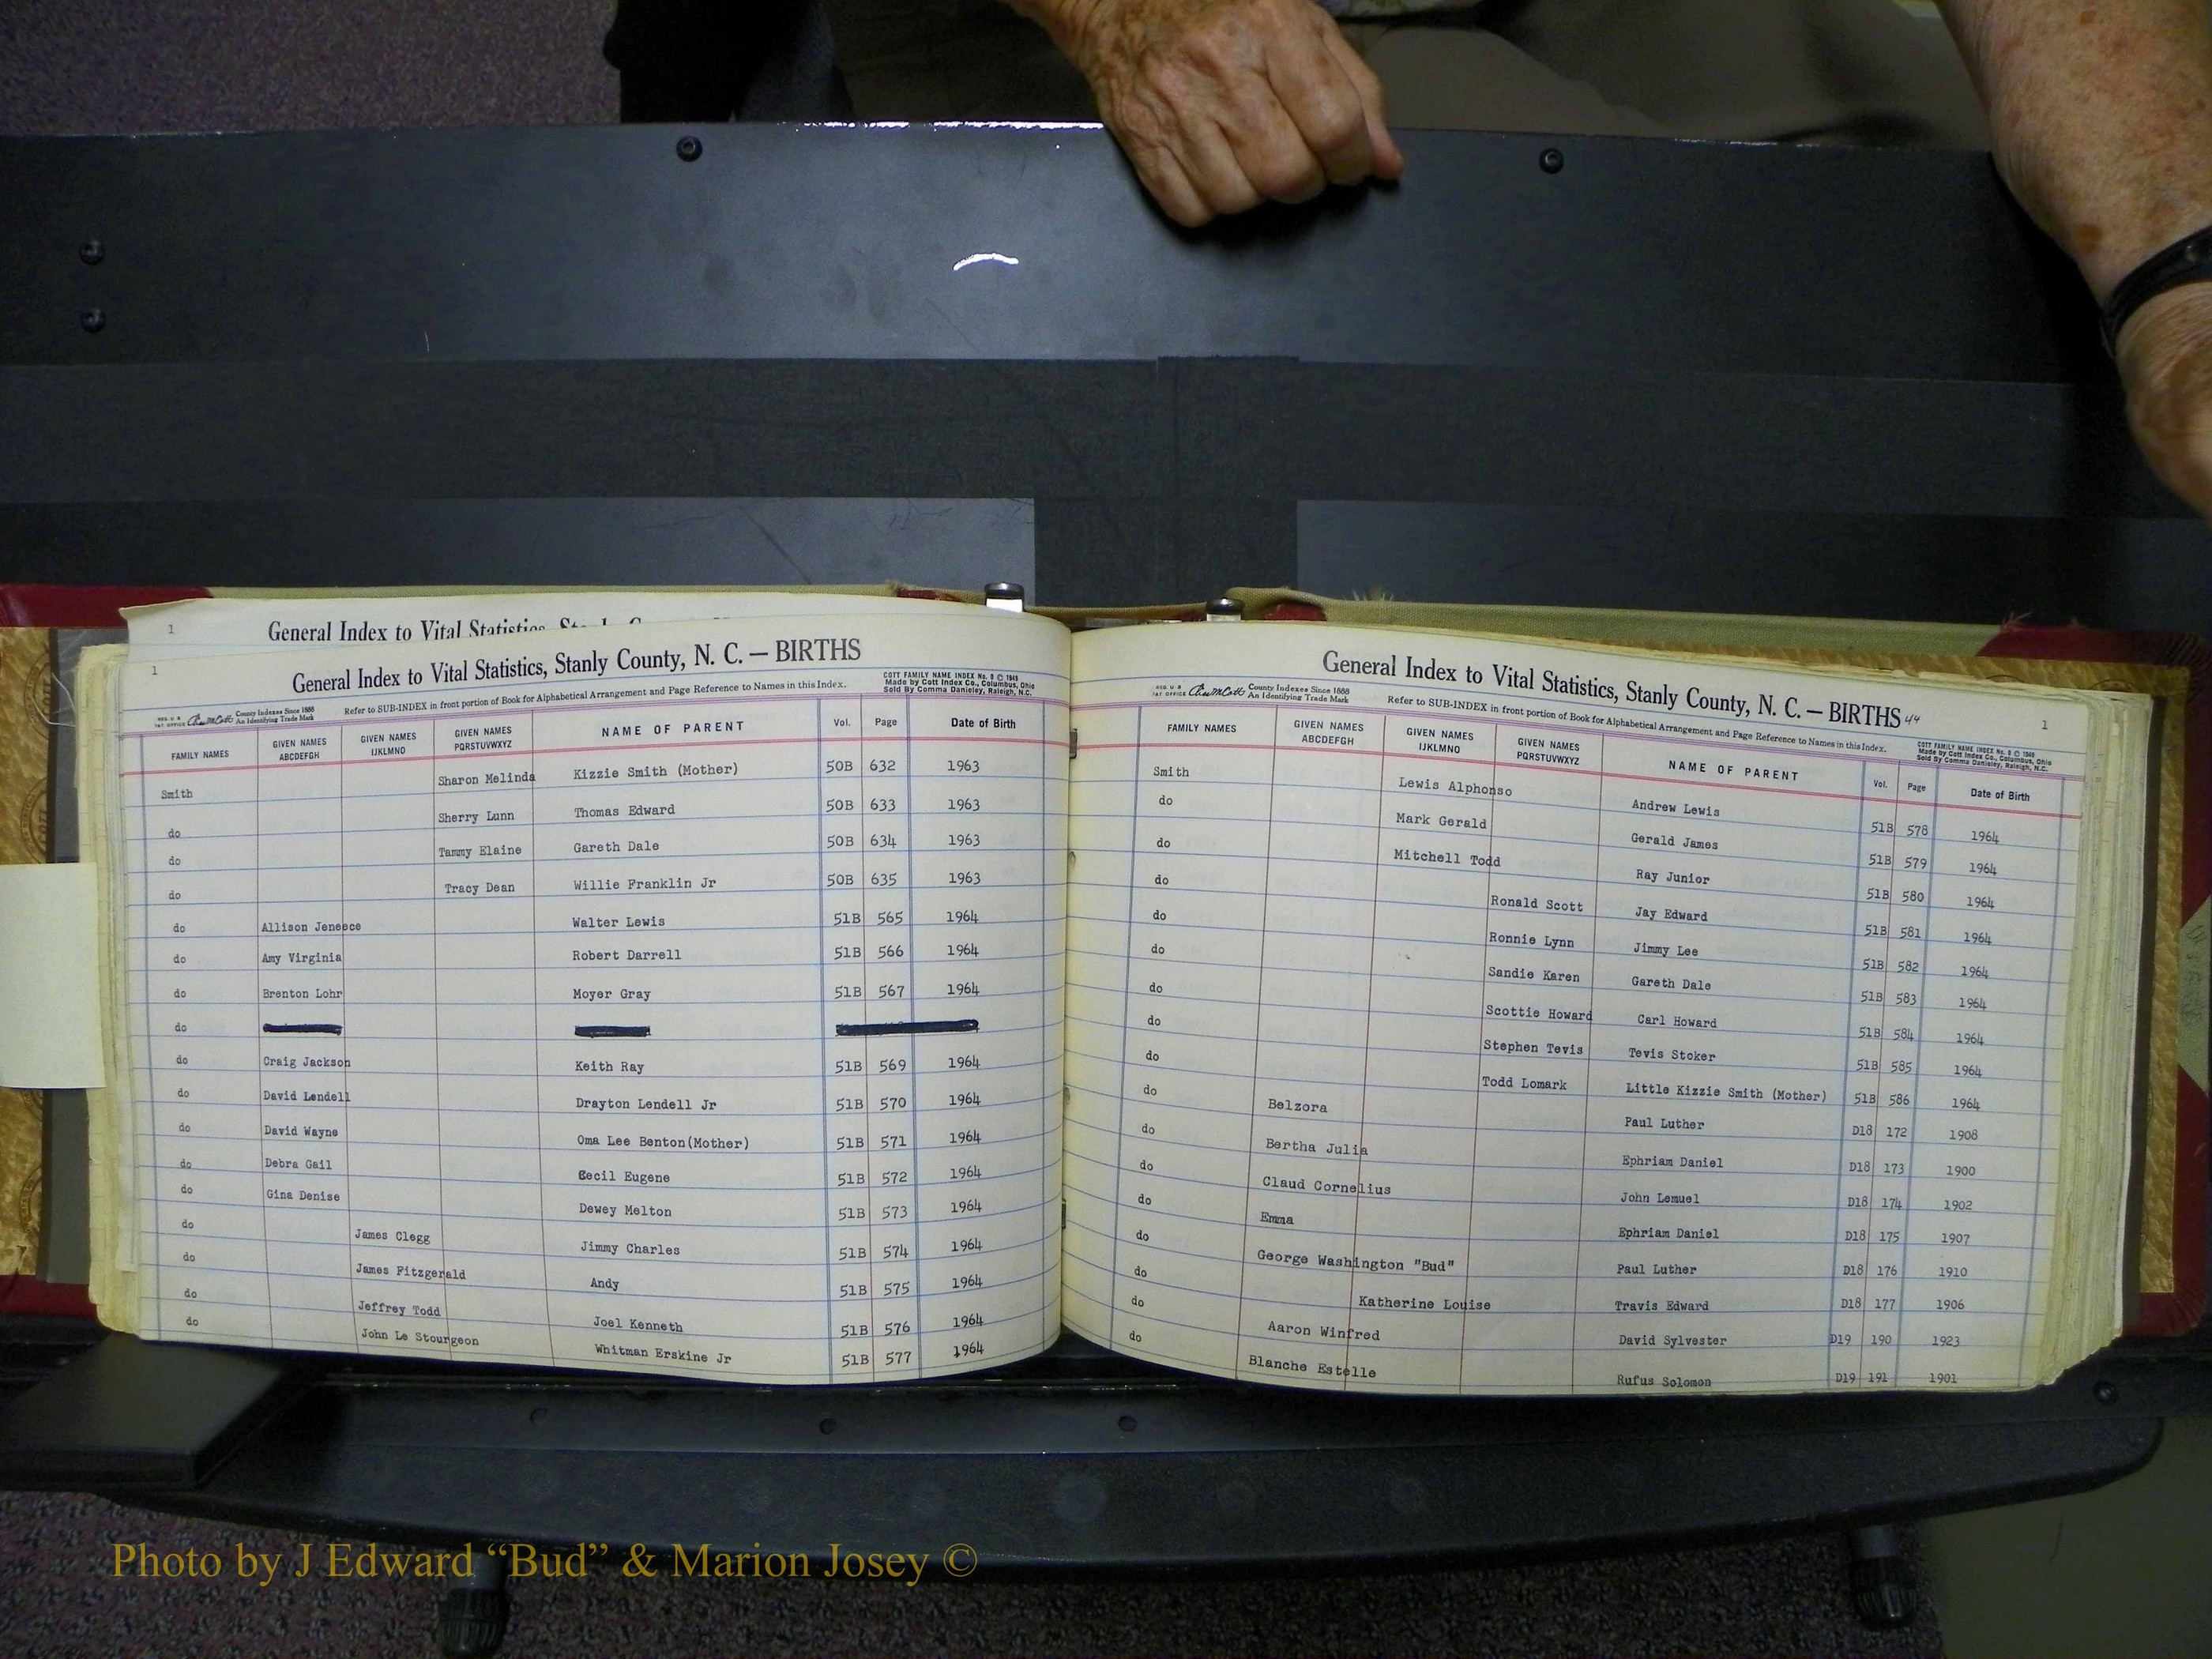 1
General Index to Vital Statistics,
1
General Index to Vital Statistics, Stanly County, N. C. — BIRTHS
COTT FAMILY NAME INDEX No. 9 © 1949
Made by Cott Index Co., Columbus, Ohio
Sold By Comma Danieley, Raleigh, N.C.
REG. U S
PAT. OFFICE
County Indexes Since 1888
An Identifying Trade Mark
Refer to SUB-INDEX in front portion of Book for Alphabetical Arrangement and Page Reference to Names in this Index.
FAMILY NAMES GIVEN NAMES ABCDEFGH GIVEN NAMES IJKLMNO GIVEN NAMES PQRSTUVWXYZ NAME OF PARENT Vol. Page Date of Birth
Smith Sharon Melinda Kizzie Smith (Mother) 50B 632 1963
do Sherry Lunn Thomas Edward 50B 633 1963
do Tammy Elaine Gareth Dale 50B 634 1963
do Tracy Dean Willie Franklin Jr 50B 635 1963
do Allison Jeneece Walter Lewis 51B 565 1964
do Amy Virginia Robert Darrell 51B 566 1964
do Brenton Lohr Moyer Gray 51B 567 1964
do
do Craig Jackson Keith Ray 51B 569 1964
do David Lendell Drayton Lendell Jr 51B 570 1964
do David Wayne Oma Lee Benton(Mother) 51B 571 1964
do Debra Gail Cecil Eugene 51B 572 1964
do Gina Denise Dewey Melton 51B 573 1964
do James Clegg Jimmy Charles 51B 574 1964
do James Fitzgerald Andy 51B 575 1964
do Jeffrey Todd Joel Kenneth 51B 576 1964
do John Le Stourgeon Whitman Erskine Jr 51B 577 1964
General Index to Vital Statistics, Stanly County, N. C. — BIRTHS 44
1
REG. U S
PAT OFFICE
County Indexes Since 1888
An Identifying Trade Mark
Refer to SUB-INDEX in front portion of Book for Alphabetical Arrangement and Page Reference to Names in this Index.
COTT FAMILY NAME INDEX No. 9 © 1949
Made by Cott Index Co., Columbus, Ohio
Sold By Comma Danieley, Raleigh, N.C.
FAMILY NAMES GIVEN NAMES ABCDEFGH GIVEN NAMES IJKLMNO GIVEN NAMES PQRSTUVWXYZ NAME OF PARENT Vol. Page Date of Birth
Smith Lewis Alphonso Andrew Lewis 51B 578 1964
do Mark Gerald Gerald James 51B 579 1964
do Mitchell Todd Ray Junior 51B 580 1964
do Ronald Scott Jay Edward 51B 581 1964
do Ronnie Lynn Jimmy Lee 51B 582 1964
do Sandie Karen Gareth Dale 51B 583 1964
do Scottie Howard Carl Howard 51B 584 1964
do Stephen Tevis Tevis Stoker 51B 585 1964
do Todd Lomark Little Kizzie Smith (Mother) 51B 586 1964
do Belzora Paul Luther D18 172 1908
do Bertha Julia Ephriam Daniel D18 173 1900
do Claud Cornelius John Lemuel D18 174 1902
do Emma Ephriam Daniel D18 175 1907
do George Washington "Bud" Paul Luther D18 176 1910
do Katherine Louise Travis Edward D18 177 1906
do Aaron Winfred David Sylvester D19 190 1923
do Blanche Estelle Rufus Solomon D19 191 1901
Photo by J Edward “Bud” & Marion Josey ©